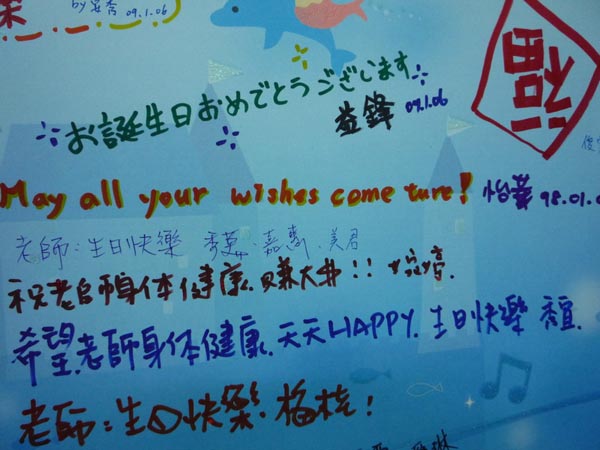 by 宴秀 09.1.06
福
お誕生日おめでとうございます
益鋒 09.1.06
May all your wishes come ture! 怡華 98.01.0
老師:生日快樂 秀草、嘉惠、美君
祝老師身体健康、賺大井!!
希望老師身体健康、天天HAPPY. 生日快樂
老師:生日快樂.梅桂!